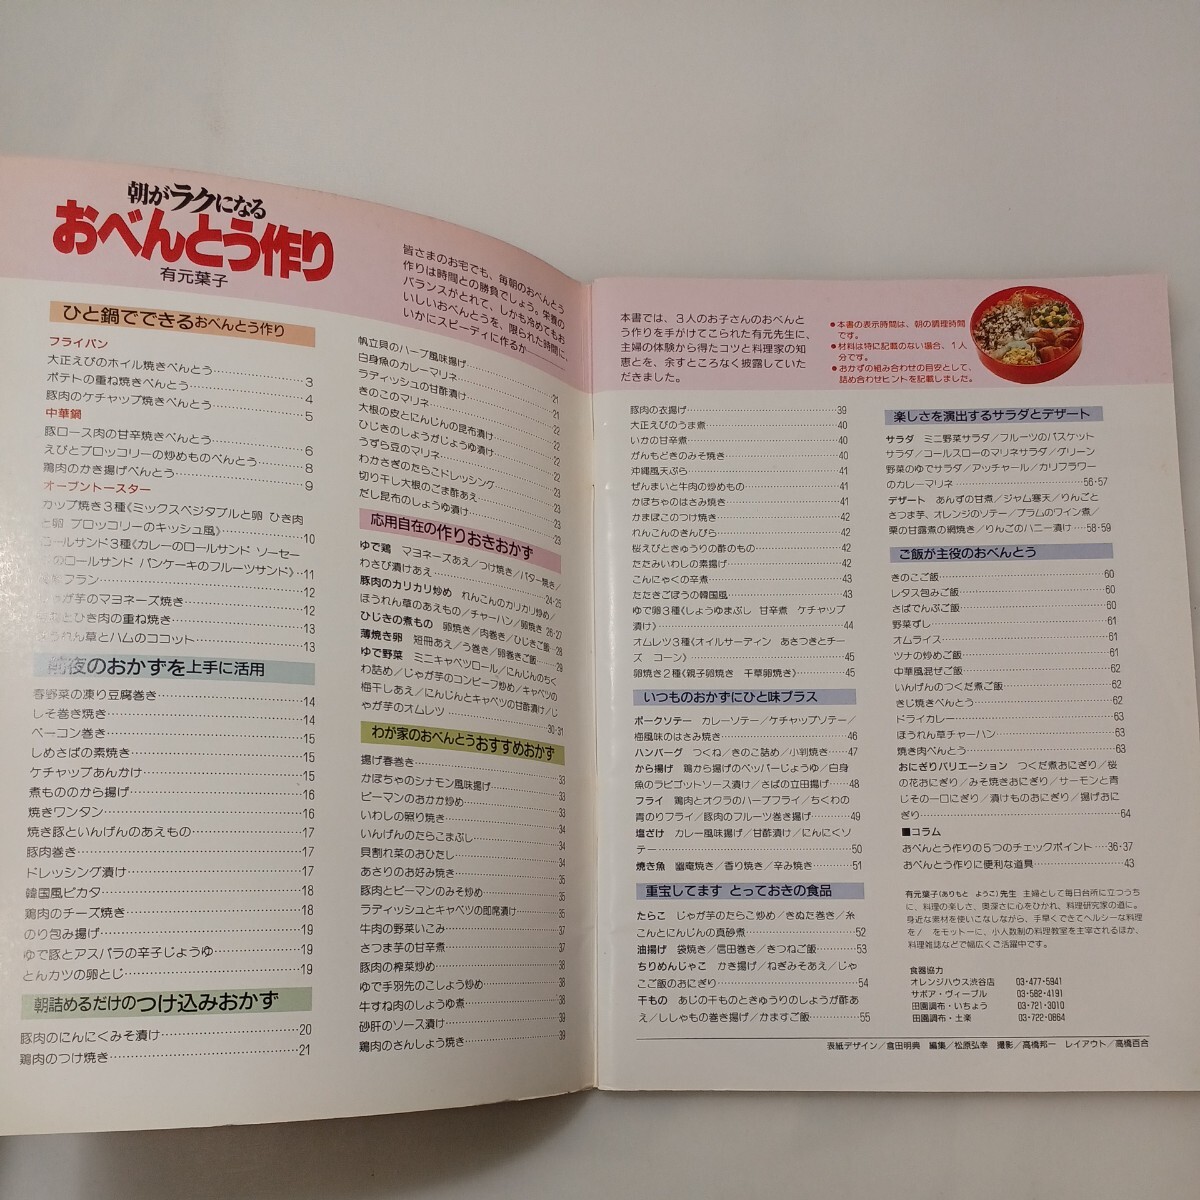 朝がラクになる
おべんとう作り
有元葉子
皆さまのお宅でも、毎朝のおべんとう
作りは時間との勝負でしょう。栄養の
バランスがとれて、しかも冷めてもお
いしいおべんとうを、限られた時間に、
いかにスピーディに作るか
ひと鍋でできるおべんとう作り
フライパン
大正えびのホイル焼きべんとう……3
ポテトの重ね焼きべんとう……4
豚肉のケチャップ焼きべんとう……5
中華鍋
豚ロース肉の甘辛焼きべんとう……6
えびとブロッコリーの炒めものべんとう……8
鶏肉のかき揚げべんとう……9
オーブントースター
カップ焼き3種《ミックスベジタブルと卵 ひき肉
と卵 ブロッコリーのキッシュ風》……10
ロールサンド3種《カレーのロールサンド ソーセー
のロールサンド パンケーキのフルーツサンド》‥11
フラン……12
が芋のマヨネーズ焼き……12
とひき肉の重ね焼き……13
うれん草とハムのココット……13
前夜のおかずを上手に活用
春野菜の凍り豆腐巻き……14
しそ巻き焼き……14
ベーコン巻き……15
しめさばの素焼き……15
ケチャップあんかけ……15
煮もののから揚げ……16
焼きワンタン……16
焼き豚といんげんのあえもの……17
豚肉巻き……17
ドレッシング漬け……17
韓国風ピカタ……18
鶏肉のチーズ焼き……18
のり包み揚げ……19
ゆで豚とアスパラの辛子じょうゆ……19
とんカツの卵とじ……19
朝詰めるだけのつけ込みおかず
豚肉のにんにくみそ漬け……20
鶏肉のつけ焼き……21
帆立貝のハーブ風味揚げ……21
白身魚のカレーマリネ……21
ラディッシュの甘酢漬け……22
きのこのマリネ……22
大根の皮とにんじんの昆布漬け……22
ひじきのしょうがじょうゆ漬け……22
うずら豆のマリネ……23
わかさぎのたらこドレッシング……23
切り干し大根のごま酢あえ……23
だし昆布のしょうゆ漬け……23
応用自在の作りおきおかず
ゆで鶏 マヨネーズあえ／つけ焼き／バター焼き／
わさび漬けあえ……24・25
豚肉のカリカリ炒め れんこんのカリカリ炒め／
ほうれん草のあえもの／チャーハン／卵焼き‥26・27
ひじきの煮もの 卵焼き／肉巻き／ひじきご飯…28
薄焼き卵 短冊あえ／う巻き／卵巻きご飯……29
ゆで野菜 ミニキャベツロール／にんじんのちく
わ詰め／じゃが芋のコンビーフ炒め／キャベツの
梅干しあえ／にんじんとキャベツの甘酢漬け／じ
ゃが芋のオムレツ……30・31
わが家のおべんとうおすすめおかず
揚げ春巻き……33
かぼちゃのシナモン風味揚げ……33
ピーマンのおかか炒め……33
いわしの照り焼き……34
いんげんのたらこまぶし……34
貝割れ菜のおひたし……34
あさりのお好み焼き……35
豚肉とピーマンのみそ炒め……35
ラディッシュとキャベツの即席漬け……35
牛肉の野菜いこみ……37
さつま芋の甘辛煮……37
豚肉の榨菜炒め……38
ゆで手羽先のごまじょうゆ……38
牛すね肉のしょうゆ煮……38
砂肝のソース漬け……39
鶏肉のさんしょう焼き……39
本書では、3人のお子さんのおべんと
う作りを手がけてこられた有元先生に、
主婦の体験から得たコツと料理家の知
恵とを、余すところなく披露していた
だきました。
●本書の表示時間は、朝の調理時間
です。
●材料は特に記載のない場合、1人
分です。
●おかずの組み合わせの目安として、
詰め合わせヒントを記載しました。
豚肉の衣揚げ……39
大正えびのうま煮……40
いかの甘辛煮……40
がんもどきのみそ焼き……40
沖縄風天ぷら……41
ぜんまいと牛肉の炒めもの……41
かぼちゃのはさみ焼き……41
かまぼこのつけ焼き……42
れんこんのきんぴら……42
桜えびときゅうりの酢のもの……42
たたみいわしの素揚げ……42
こんにゃくの辛煮……43
たたきごぼうの韓国風……43
ゆで卵3種《しょうゆまぶし 甘辛煮 ケチャップ
漬け》……44
オムレツ3種《オイルサーディン あさつきとチー
ズ コーン》……45
卵焼き2種《親子卵焼き 千草卵焼き》……45
いつものおかずにひと味プラス
ポークソテー カレーソテー／ケチャップソテー／
梅風味のはさみ焼き……46
ハンバーグ つくね／きのこ詰め／小判焼き……47
から揚げ 鶏から揚げのペッパーじょうゆ／白身
魚のラビゴットソース漬け／さばの立田揚げ……48
フライ 鶏肉とオクラのハーブフライ／ちくわの
青のりフライ／豚肉のフルーツ巻き揚げ……49
塩ざけ カレー風味揚げ／甘酢漬け／にんにくソ
テー……50
焼き魚 幽庵焼き／香り焼き／辛み焼き……51
重宝してます とっておきの食品
たらこ じゃが芋のたらこ炒め／きぬた巻き／糸
こんとにんじんの真砂煮……52
油揚げ 袋焼き／信田巻き／きつねご飯……53
ちりめんじゃこ かき揚げ／ねぎみそあえ／じゃ
こご飯のおにぎり……54
干もの あじの干ものときゅうりのしょうが酢あ
え／ししゃもの巻き揚げ／かますご飯……55
楽しさを演出するサラダとデザート
サラダ ミニ野菜サラダ／フルーツのバスケット
サラダ／コールスローのマリネサラダ／グリーン
野菜のゆでサラダ／アッチャール／カリフラワー
のカレーマリネ……56・57
デザート あんずの甘煮／ジャム寒天／りんごと
さつま芋、オレンジのソテー／プラムのワイン煮／
栗の甘露煮の網焼き／りんごのハニー漬け……58・59
ご飯が主役のおべんとう
きのこご飯……60
レタス包みご飯……60
さばでんぶご飯……60
野菜ずし……61
オムライス……61
ツナの炒めご飯……61
中華風混ぜご飯……62
いんげんのつくだ煮ご飯……62
きじ焼きべんとう……62
ドライカレー……63
ほうれん草チャーハン……63
焼き肉べんとう……63
おにぎりバリエーション つくだ煮おにぎり／桜
の花おにぎり／みそ焼きおにぎり／サーモンと青
じその一口にぎり／漬けものおにぎり／揚げおに
ぎり……64
■コラム
おべんとう作りの5つのチェックポイント……36・37
おべんとう作りに便利な道具……43
有元葉子(ありもと ようこ)先生 主婦として毎日台所に立つうち
に、料理の楽しさ、奥深さに心をひかれ、料理研究家の道に。
身近な素材を使いこなしながら、手早くできてヘルシーな料理
を！ をモットーに、小人数制の料理教室を主宰されるほか、
料理雑誌などで幅広くご活躍中です。
食器協力
オレンジハウス渋谷店 03・477・5941
サボア・ヴィーブル 03・582・4191
田園調布・いちょう 03・721・3010
田園調布・土楽 03・722・0864
表紙デザイン／倉田明典 編集／松原弘幸 撮影／高橋邦一 レイアウト／高橋百合